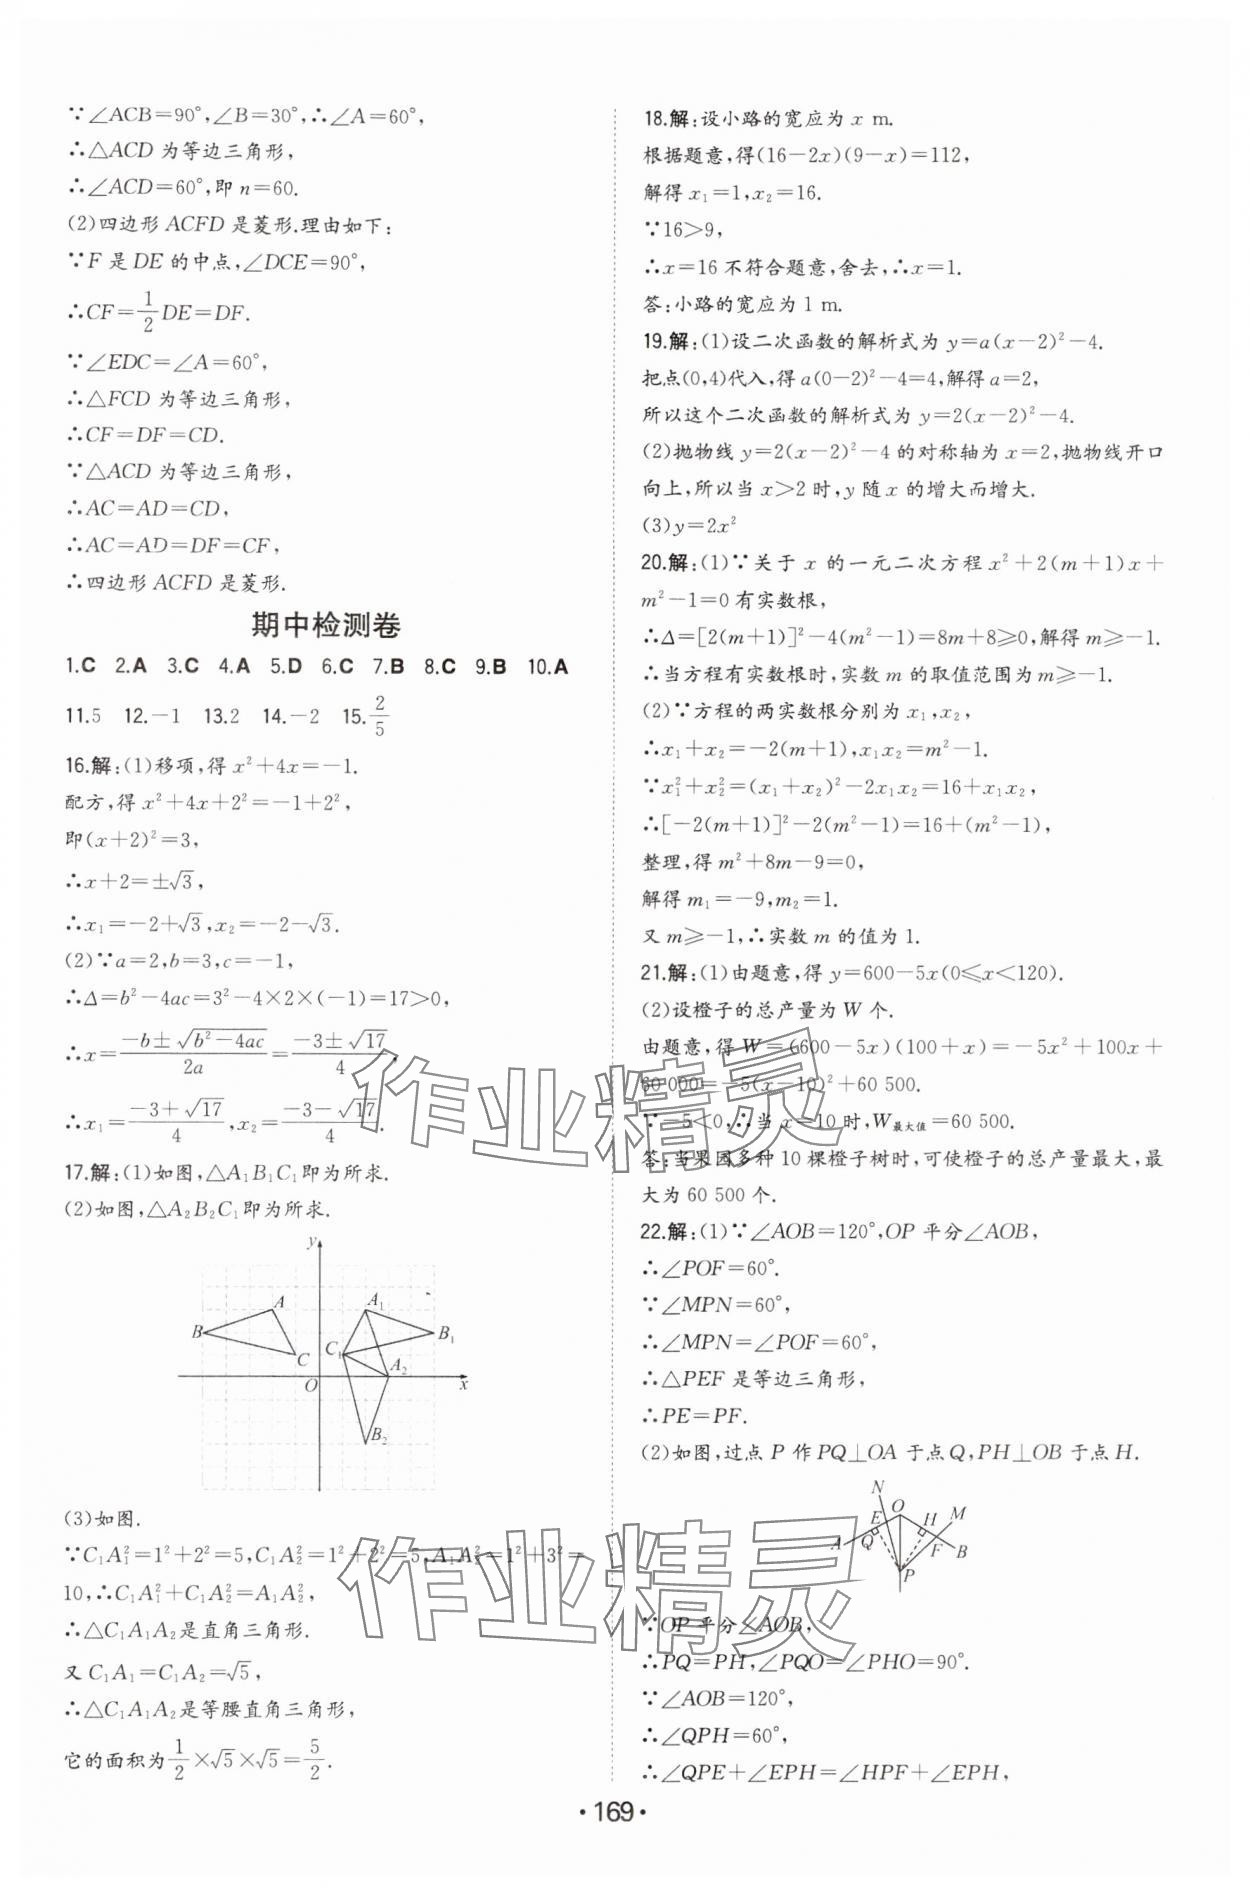 ∵∠ACB=90°,∠B=30°,∴∠A=60°,
∴△ACD 为等边三角形,
∴∠ACD=60°,即 n=60.
(2)四边形 ACFD 是菱形.理由如下:
∵F 是 DE 的中点,∠DCE=90°,
∴CF=1/2DE=DF.
∵∠EDC=∠A=60°,
∴△FCD 为等边三角形,
∴CF=DF=CD.
∵△ACD 为等边三角形,
∴AC=AD=CD,
∴AC=AD=DF=CF,
∴四边形 ACFD 是菱形.
期中检测卷
1.C 2.A 3.C 4.A 5.D 6.C 7.B 8.C 9.B 10.A
11.5 12.-1 13.2 14.-2 15.2/5
16.解:(1)移项,得 x²+4x=-1.
配方,得 x²+4x+2²=-1+2²,
即(x+2)²=3,
∴x+2=±√3,
∴x₁=-2+√3,x₂=-2-√3.
(2)∵a=2,b=3,c=-1,
∴Δ=b²-4ac=3²-4×2×(-1)=17>0,
∴x=(-b±√(b²-4ac))/2a=(-3±√17)/4,
∴x₁=(-3+√17)/4,x₂=(-3-√17)/4.
17.解:(1)如图,△A₁B₁C₁即为所求.
(2)如图,△A₂B₂C₁即为所求.
y
A
A₁
B
B₁
C
C₁
A₂
O
x
B₂
(3)如图.
∵C₁A₁²=1²+2²=5,C₁A₂²=1²+2²=5,A₁A₂²=1²+3²=
10,∴C₁A₁²+C₁A₂²=A₁A₂²,
∴△C₁A₁A₂是直角三角形.
又 C₁A₁=C₁A₂=√5,
∴△C₁A₁A₂是等腰直角三角形,
它的面积为1/2×√5×√5=5/2.
18.解:设小路的宽应为 x m.
根据题意,得(16-2x)(9-x)=112,
解得 x₁=1,x₂=16.
∵16>9,
∴x=16 不符合题意,舍去,∴x=1.
答:小路的宽应为 1 m.
19.解:(1)设二次函数的解析式为 y=a(x-2)²-4.
把点(0,4)代入,得 a(0-2)²-4=4,解得 a=2,
所以这个二次函数的解析式为 y=2(x-2)²-4.
(2)抛物线 y=2(x-2)²-4 的对称轴为 x=2,抛物线开口
向上,所以当 x>2 时,y 随 x 的增大而增大.
(3)y=2x²
20.解:(1)∵关于 x 的一元二次方程 x²+2(m+1)x+
m²-1=0 有实数根,
∴Δ=[2(m+1)]²-4(m²-1)=8m+8≥0,解得 m≥-1.
∴当方程有实数根时,实数 m 的取值范围为 m≥-1.
(2)∵方程的两实数根分别为 x₁,x₂,
∴x₁+x₂=-2(m+1),x₁x₂=m²-1.
∵x₁²+x₂²=(x₁+x₂)²-2x₁x₂=16+x₁x₂,
∴[-2(m+1)]²-2(m²-1)=16+(m²-1),
整理,得 m²+8m-9=0,
解得 m₁=-9,m₂=1.
又 m≥-1,∴实数 m 的值为 1.
21.解:(1)由题意,得 y=600-5x(0≤x<120).
(2)设橙子的总产量为 W 个.
由题意,得 W=(600-5x)(100+x)=-5x²+100x+
60 000=-5(x-10)²+60 500.
∵-5<0,∴当 x=10 时,W最大值=60 500.
答:当果园多种 10 棵橙子树时,可使橙子的总产量最大,最
大为 60 500 个.
22.解:(1)∵∠AOB=120°,OP 平分∠AOB,
∴∠POF=60°.
∵∠MPN=60°,
∴∠MPN=∠POF=60°,
∴△PEF 是等边三角形,
∴PE=PF.
(2)如图,过点 P 作 PQ⊥OA 于点 Q,PH⊥OB 于点 H.
N
O
E
H
M
A
Q
F
B
P
∵OP 平分∠AOB,
∴PQ=PH,∠PQO=∠PHO=90°.
∵∠AOB=120°,
∴∠QPH=60°,
∴∠QPE+∠EPH=∠HPF+∠EPH,
·169·
作业精灵
作业精灵